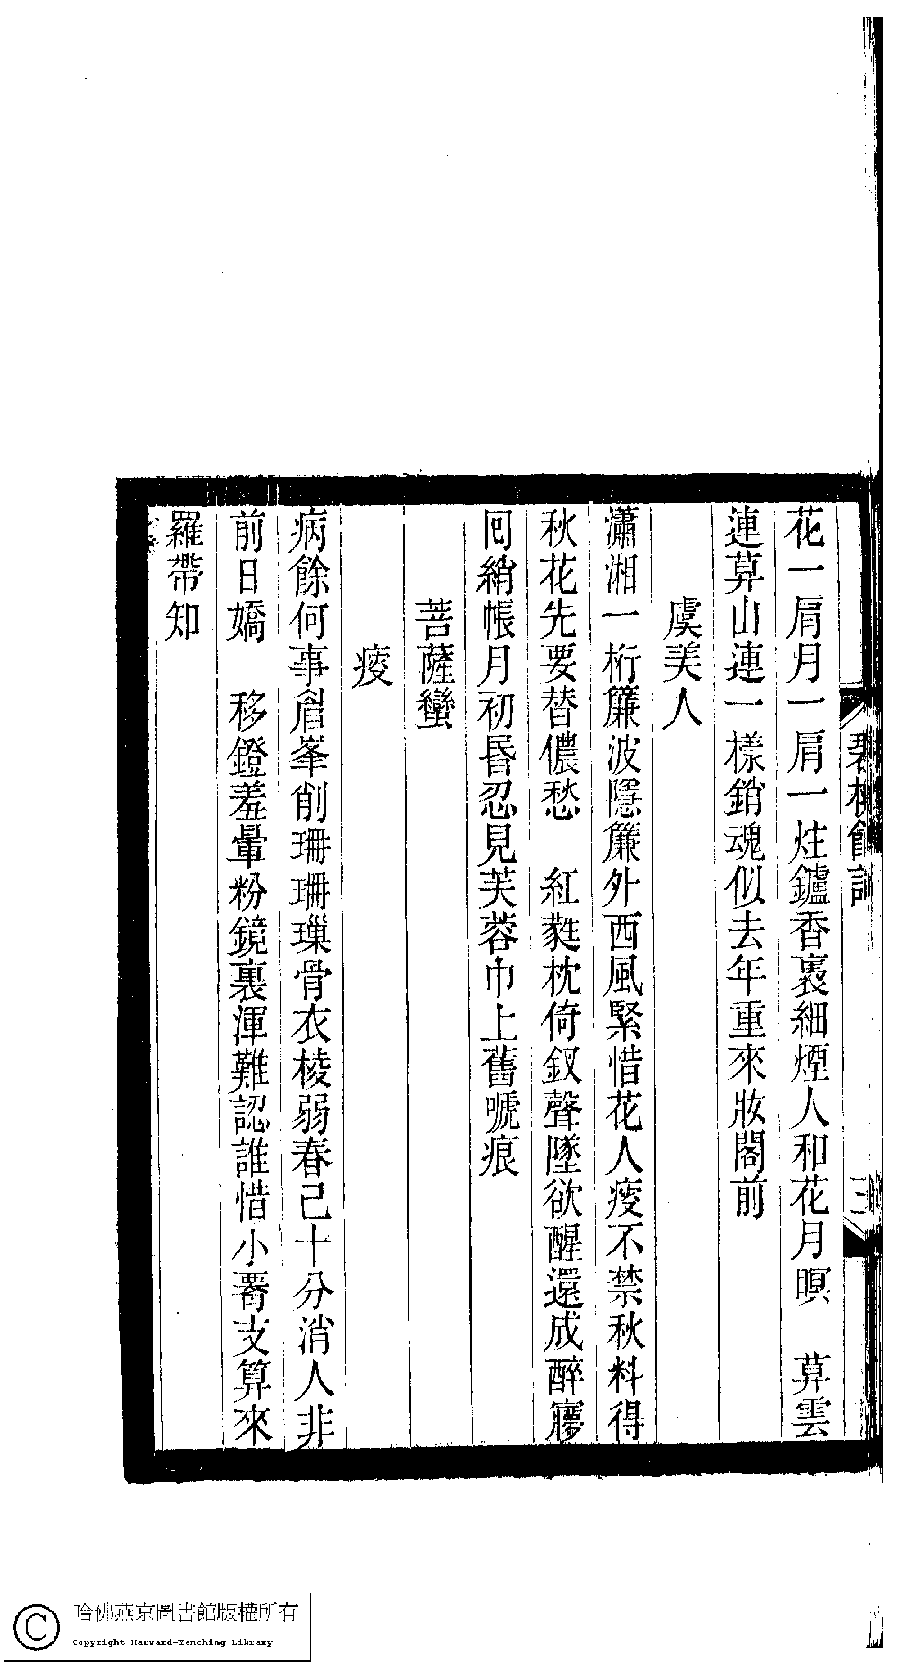 碧桃館詞 三
花一肩月一肩一炷鑪香裹細煙人和花月暝　𦱤雲
連𦱤山連一樣銷魂似去年重來妝閣前
虞美人
瀟湘一桁簾波隱簾外西風緊惜花人瘦不禁秋料得
秋花先要替儂愁　紅蕤枕倚釵聲墜欲醒還成醉㝱
回綃帳月初昏忍見芙蓉巾上舊嗁痕
菩薩蠻
瘦
病餘何事眉峯削珊珊璅骨衣棱弱春已十分消人非
前日嬌　移鐙羞暈粉鏡裏渾難認誰惜小支算來
羅帶知
哈佛燕京圖書館版權所有
Copyright Harvard-Yenching Library